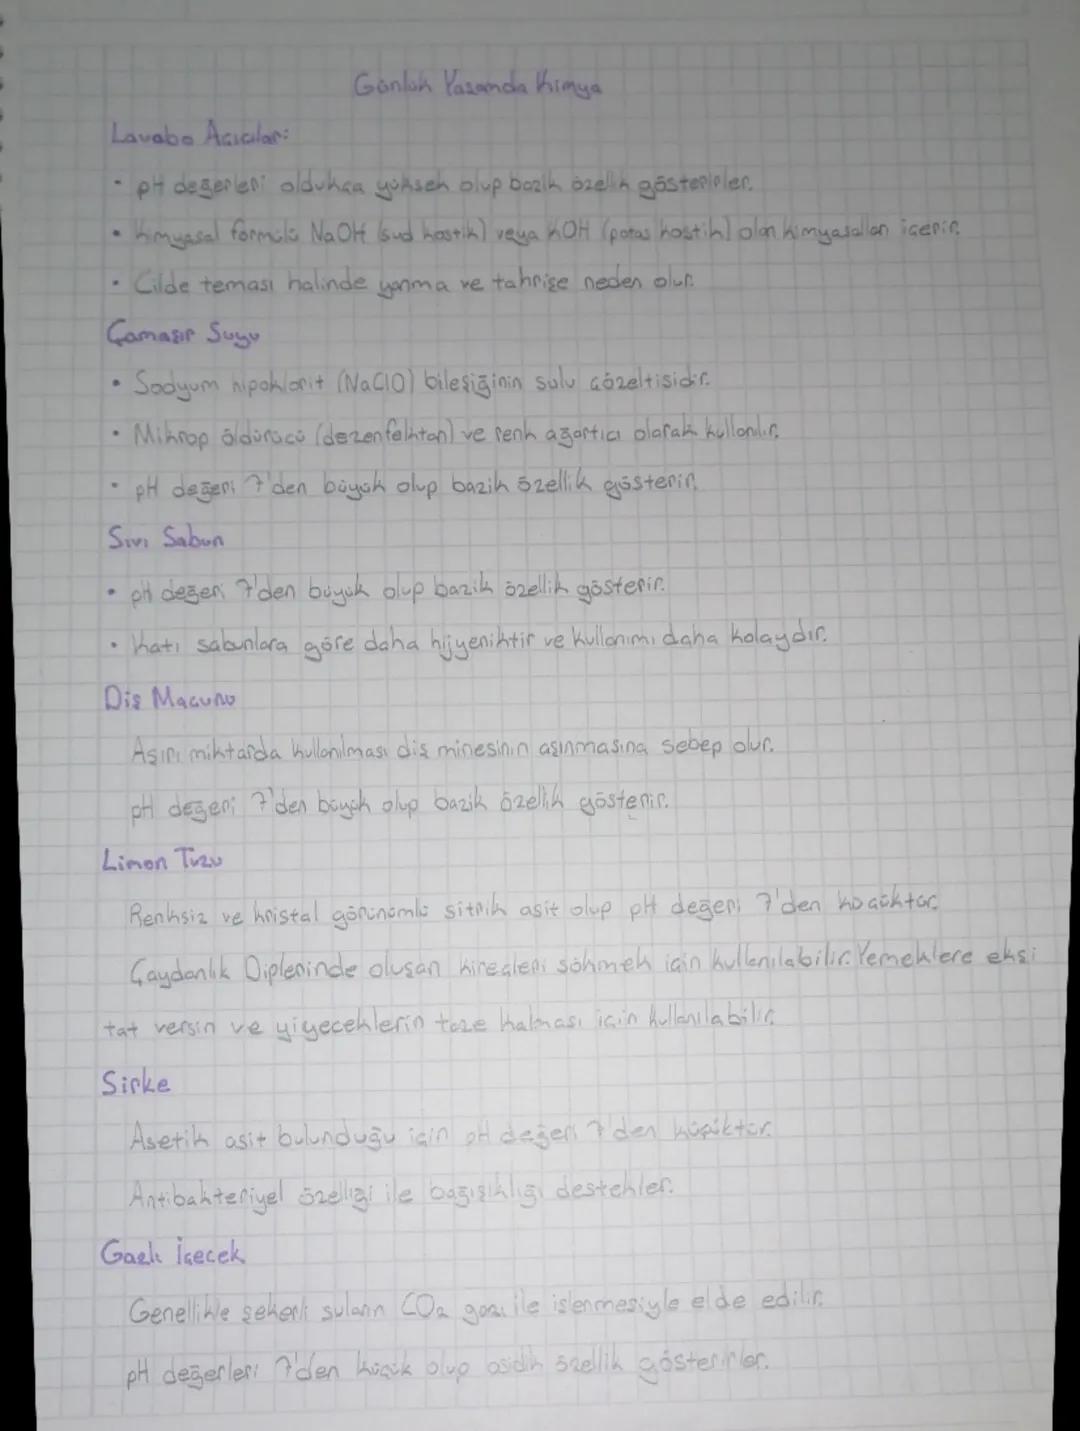 Günlük Yaşamda Kimya
Lavabo Açıcılar:
• pH değerleri oldukça yüksek olup bazik özellik gösterirler.
• Kimyasal formülü NaOH (sud kostik) veya KOH (potas kostik) olan kimyasalları içerir.
• Cilde teması halinde yanma ve tahrişe neden olur.
Çamaşır Suyu
• Sodyum hipoklorit (NaClO) bileşiğinin sulu çözeltisidir.
• Mikrop öldürücü (dezenfektan) ve renk ağartıcı olarak kullanılır.
• pH değeri 7'den büyük olup bazik özellik gösterir.
Sıvı Sabun
• pH değeri 7'den büyük olup bazik özellik gösterir.
• Katı sabunlara göre daha hijyeniktir ve kullanımı daha kolaydır.
Diş Macunu
Aşırı miktarda kullanılması diş minesinin aşınmasına sebep olur.
pH değeri 7'den büyük olup bazik özellik gösterir.
Limon Tuzu
Renksiz ve kristal görünümlü sitrik asit olup pH değeri 7'den küçüktür.
Çaydanlık Diplerinde oluşan kireçleri sökmek için kullanılabilir. Yemeklere ekşi
tat versin ve yiyeceklerin taze kalması için kullanılabilir.
Sirke
Asetik asit bulunduğu için pH değeri 7'den küçüktür.
Antibakteriyel özelliği ile bağışıklığı destekler.
Gazlı İçecek
Genellikle şekerli suların CO2 gazı ile işlenmesiyle elde edilir.
pH değerleri 7'den küçük olup asidik özellik gösterirler.